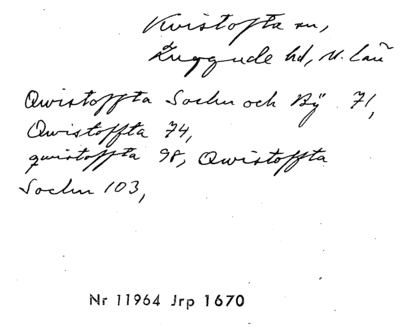 Kvistofta sn,
Luggude hd, M. län
Qwistoffta Sochn och Bÿ 71,
Qwistoffta 74,
qwistoffta 98, Qwistoffta
Sochn 103,
Nr 11964 Jrp 1670